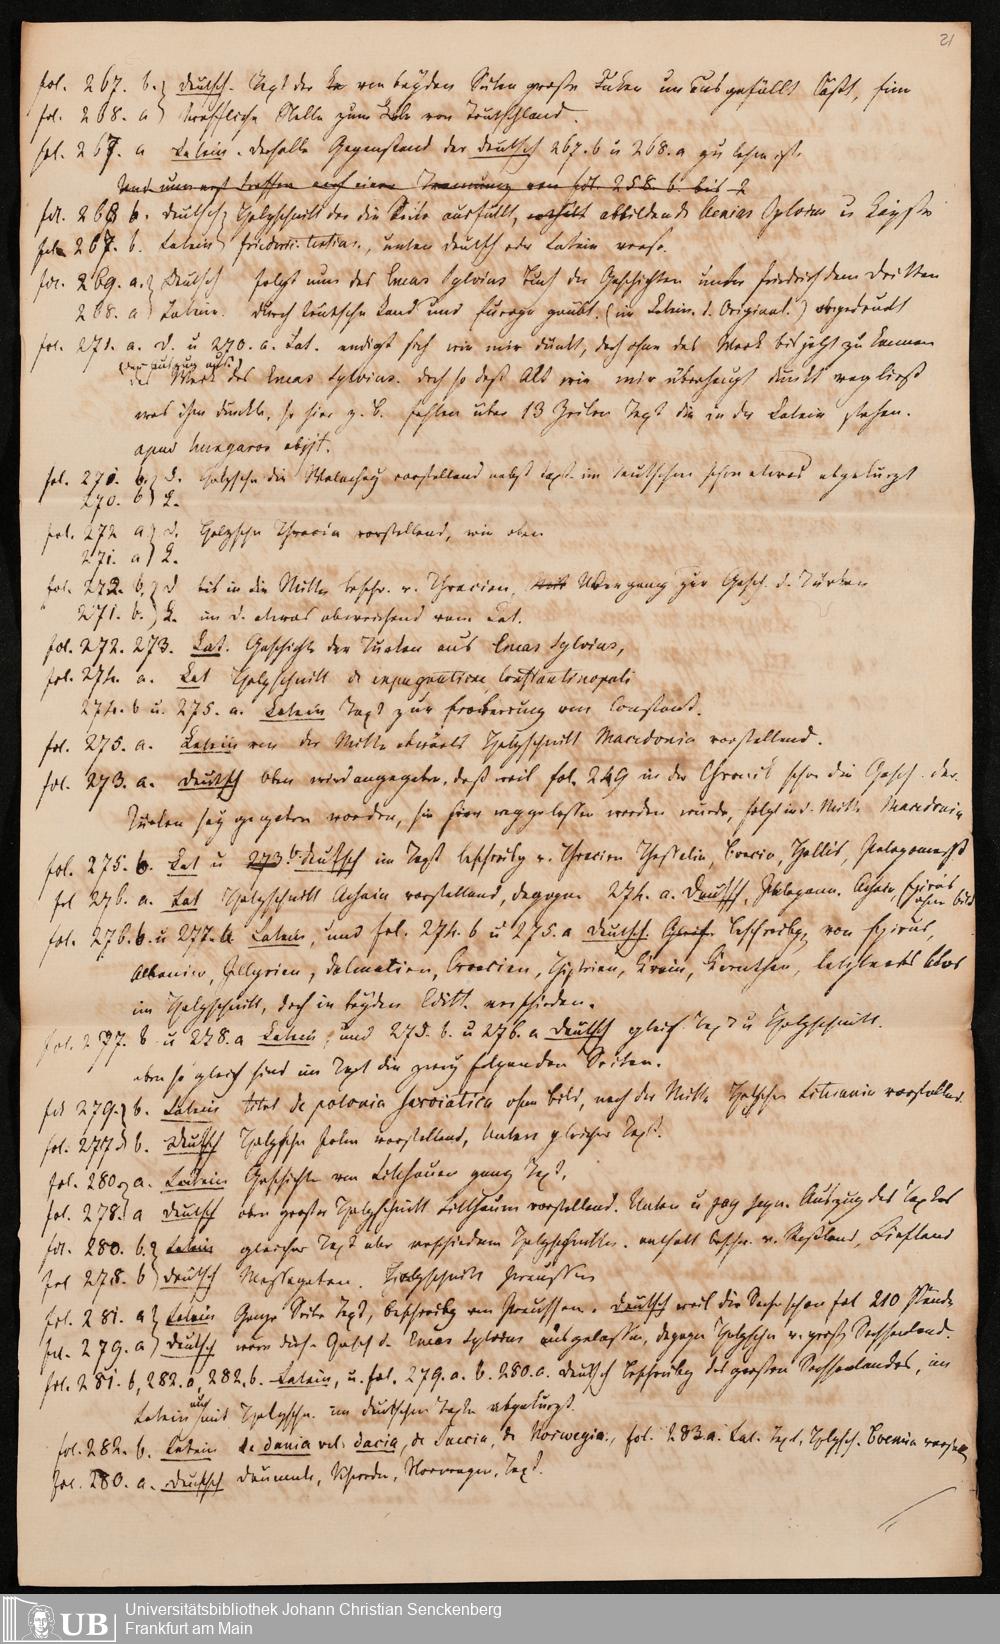 21
fol. 267. b. deutsch. Text der von beyden Seiten große Lücken unausgefüllt läßt, eine
fol. 268. a treffliche Stelle zum Lobe von Teutschland.
fol. 267. a Latein. derselbe Gegenstand der deutsch 267. b u 268. a zu lesen ist.
fol. 268 b. deutsch Holzschnitt der die Seite ausfüllt, abbildend Aenias Sylvius u Kayser
fol. 267. b. Latein friedrich tertius., unten deutsch oder Latein verse.
fol. 269. a. Deutsch folgt nun des Eneas Sylvius Buch der Geschichten unter friedrich dem dritten
268. a Latein. durch teutsche Land und Europa geübt. (im Latein. d. Original.) abgedruckt
fol. 271. a. D. u 270. a. Lat. endigt sich wie mir dünkt, doch ohne das Werk bis jetzt zu kennen
(der auszug aus)
das Werk des Eneas Sylvius. doch so daß Alt wie mir überhaupt dünkt wegließ
was ihm dünkte, so hier z. b. fehlen über 13 Zeilen Text die in der Latein stehen.
apud hungaros obijt.
fol. 271. b. D. Holzschn die Walachey vorstellend nebst text. im deutschen schon etwas abgekürzt
270. b L.
fol. 272 a D. Holzschn Thracia vorstellend, wie oben
271. a L.
fol. 272. b. D bis in die Mitte beschr. v. Thracien, Uebergang zur Gesch. d. Türken
271. b. L. im D. etwas abweichend vom Lat.
fol. 272. 273. Lat. Geschichte der Türken aus Eneas Sylvius,
fol. 274. a. Lat Holzschnitt de expugnatione Constantinopoli
274. b u. 275. a. Latein Text zur Eroberung von Constant.
fol. 275. a. Latein von der Mitte abwärts Holzschnitt Macedonia vorstellend.
fol. 273. a. deutsch Oben wird angegeben, daß weil fol. 249 in der Chronik schon die Gesch. der
Türken sey gegeben worden, sie hier weggelassen worden wurde, folgt in d. Mitte Macedonia
fol. 275. b. Lat u 273. b deutsch im Text beschreibg v. Thracien Thessalia, Boecia, Hellis, Peloponness
fol 276. a. Lat Holzschnitt Achaia vorstellend, dagegen 274. a. Deutsch, Pelopenn. Achaia, Epirus ohne bild
fol. 276. b. u 277. a Latein, und fol. 274. b u 275. a deutsch. Gleiche beschreibg. von Epirus,
Albania, Illyrien, Dalmatien, Croacien, Histrien, Krain, Kernthen, letzteres blos
im Holzschnitt, doch in beyden Editt. verschieden.
fol. 277. b u 278. a Latein, und 275. b. u 276. a deutsch gleich. Text u Holzschnitt.
eben so gleich sind im Text die zwey folgenden Seiten.
fol 279. b. Latein titel de polonia Sarmatica ohne bild, nach der Mitte Holzschn Lituania vorstellend.
fol. 277. b. Deutsch Holzschn Polen vorstellend, Unten gleicher Text.
fol. 280. a. Latein Geschichte von Litthauen ganz Text.
fol. 278. a deutsch oben großer Holzschnitt Litthauen vorstellend. Unten Auszug des Textes
fol. 280. b. Latein gleicher Text aber verschiedene Holzschnitte. enthält beschr. v. Rußland, Liefland
fol 278. b deutsch Massageten. Holzschnitt Preussen
fol. 281. a Latein Ganze Seite Text, beschreibg von Preussen. deutsch weil die Sache schon fol 210 stände
fol. 279. a deutsch wäre diese Gesch d. Eneas Sylvius ausgelassen, dagegen Holzschn v. groß Sachsenland.
fol. 281. b, 282. a, 282. b. Latein, u. fol. 279. a. b. 280. a. deutsch beschreibg des großen Sachsenlandes, im
Latein auch mit Holzschn. im deutschen Texte abgekürzt.
fol. 282. b. Latein de dania vel. dacia, de Suecia, de Norwegia, fol. 283. a. Lat. Text, Holzsch. Boemia vorstell
fol. 280. a. deutsch Dänmark, Schweden, Norwegen, Text.
UB
Universitätsbibliothek Johann Christian Senckenberg
Frankfurt am Main